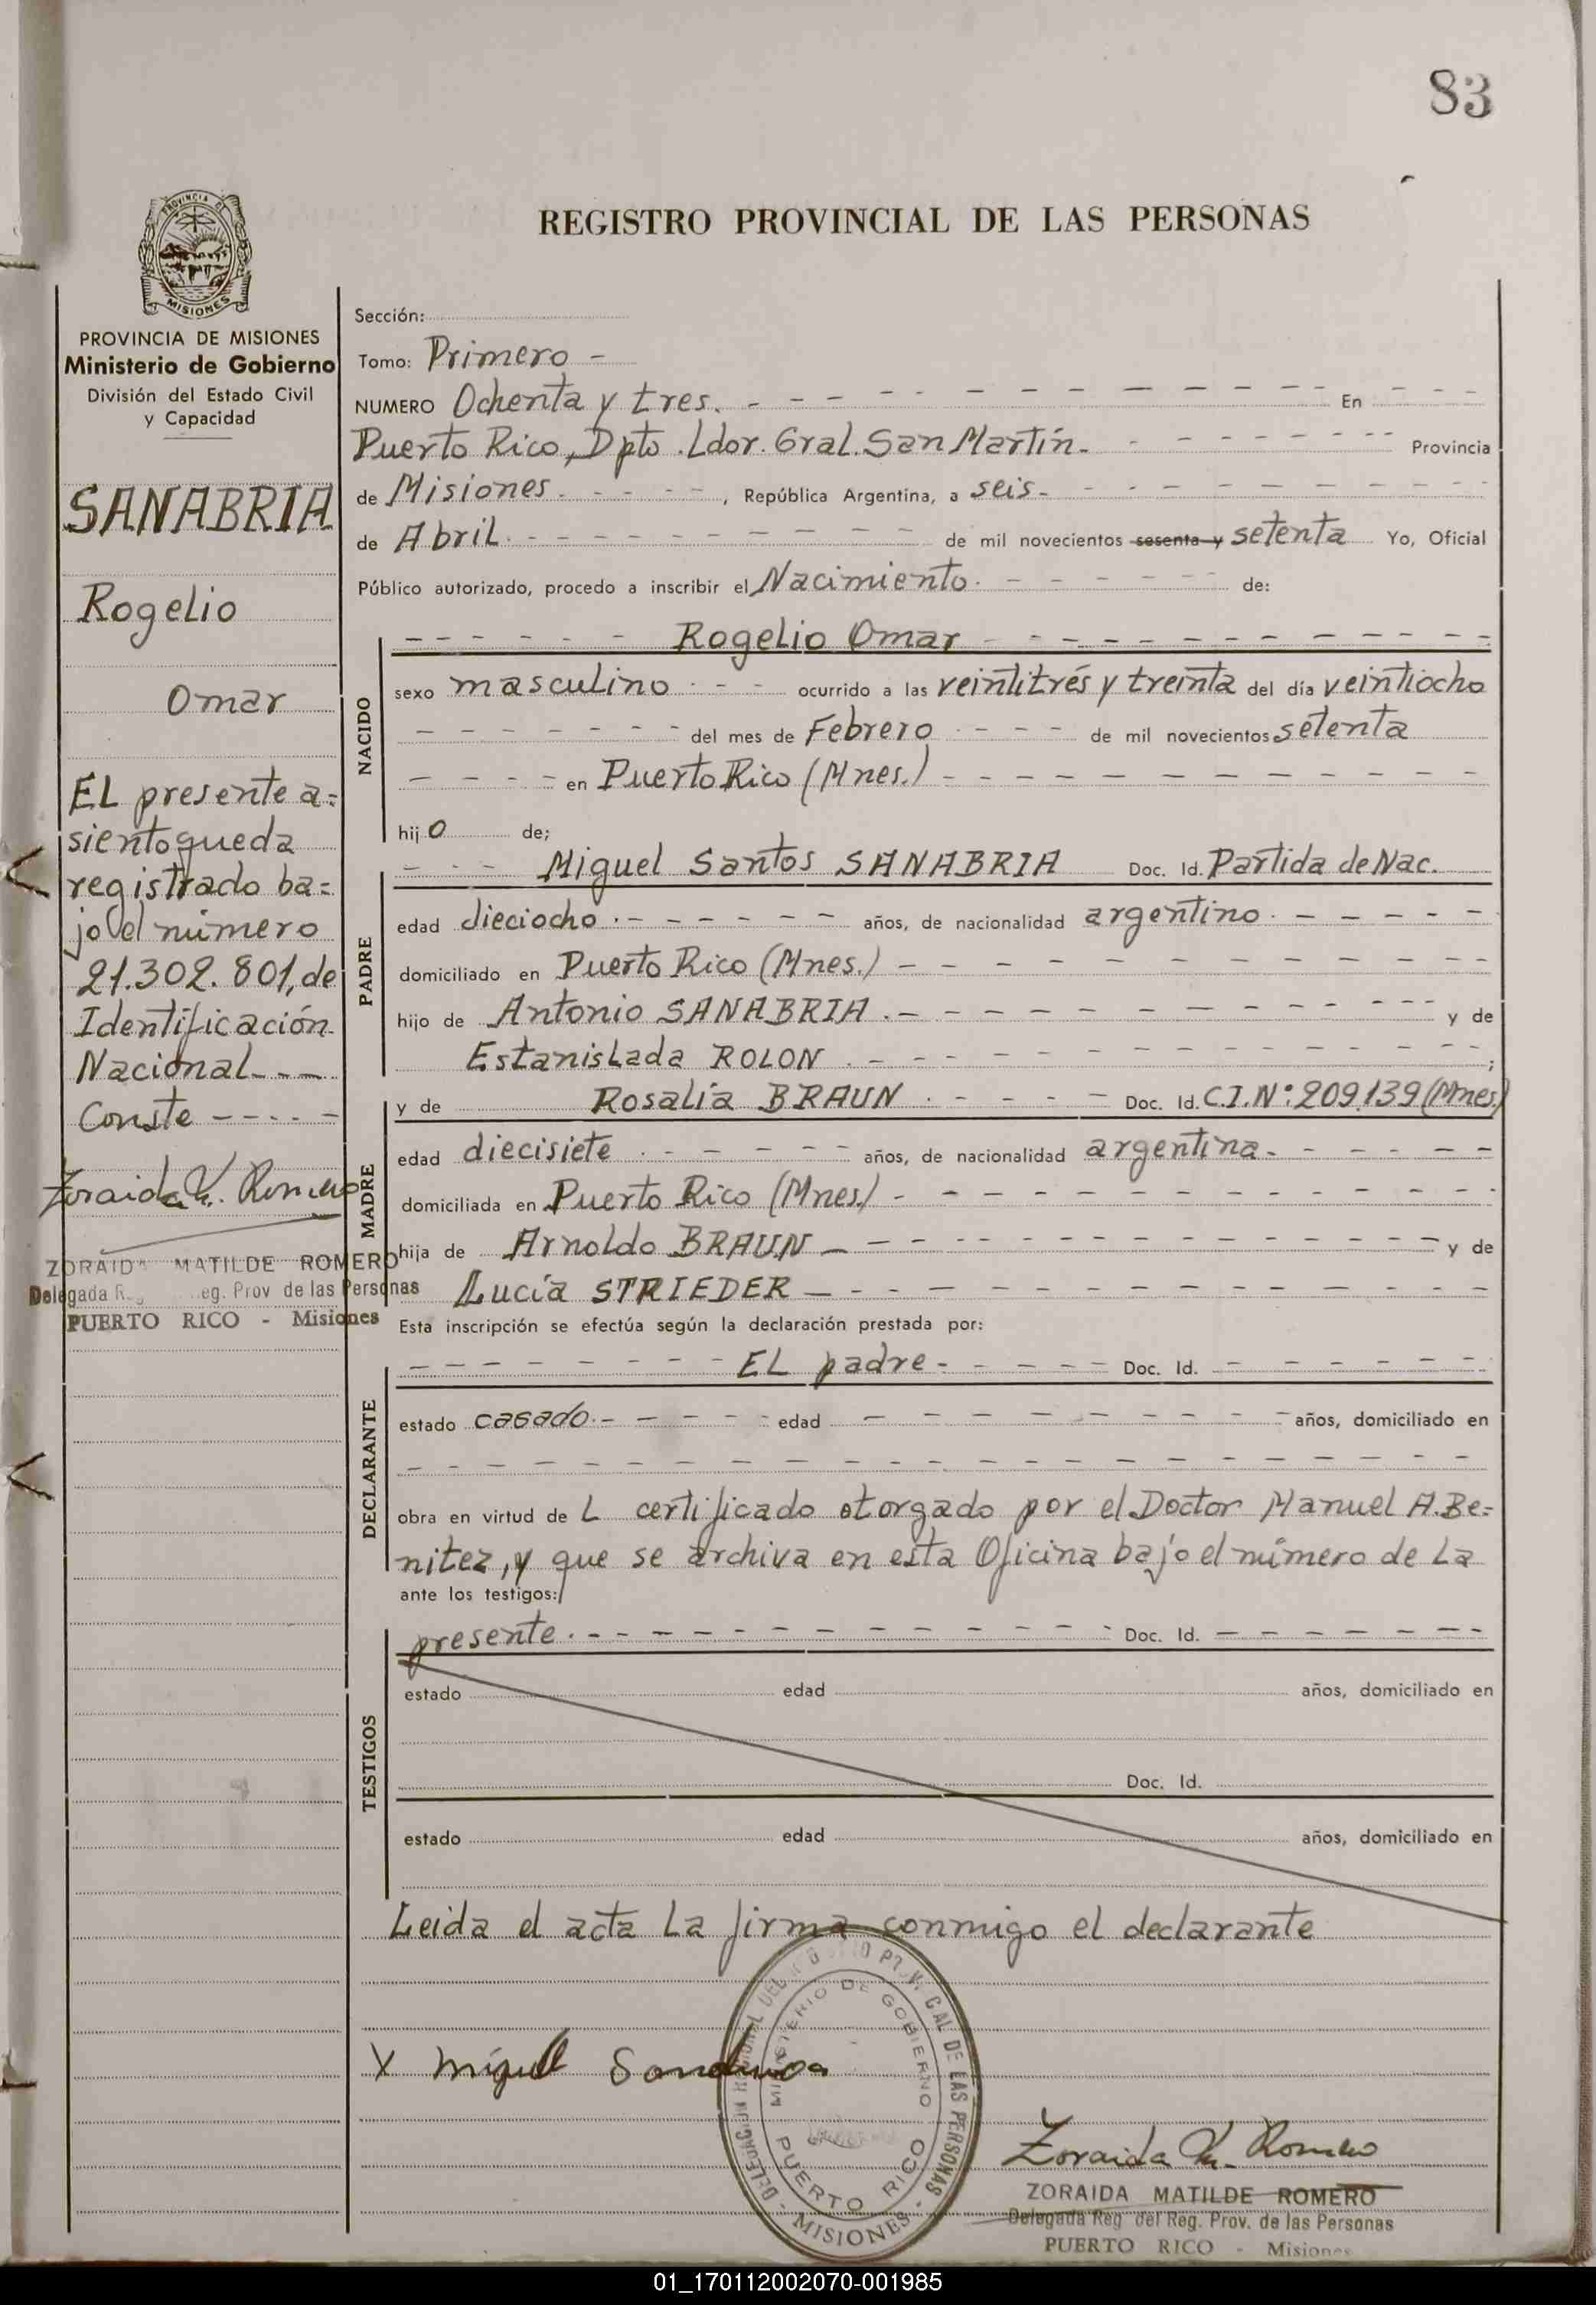 83
REGISTRO PROVINCIAL DE LAS PERSONAS
PROVINCIA DE MISIONES
Ministerio de Gobierno
División del Estado Civil
y Capacidad
SANABRIA
Rogelio
Omar
EL presente a=
siento queda
registrado ba=
jo el número
21.302.801, de
Identificación
Nacional---
Conste -----
Zoraida M. Romero
ZORAIDA MATILDE ROMERO
Delegada Reg. Prov de las Personas
PUERTO RICO - Misiones
Sección:
Tomo: Primero -
NUMERO Ochenta y tres. En
Puerto Rico, Dpto. Ldor. Gral. San Martín. Provincia
de Misiones. , República Argentina, a seis-
de Abril. de mil novecientos sesenta y setenta Yo, Oficial
Público autorizado, procedo a inscribir el Nacimiento. de:
Rogelio Omar
NACIDO
sexo masculino ocurrido a las veintitrés y treinta del día veintiocho
del mes de Febrero de mil novecientos setenta
en Puerto Rico (Mnes.)
hijo de;
PADRE
Miguel Santos SANABRIA Doc. Id. Partida de Nac.
edad dieciocho. años, de nacionalidad argentino.
domiciliado en Puerto Rico (Mnes.)
hijo de Antonio SANABRIA. y de
Estanislada ROLON. ;
MADRE
y de Rosalía BRAUN. Doc. Id. C.I.Nº:209.139 (Mnes.)
edad diecisiete años, de nacionalidad argentina.
domiciliada en Puerto Rico (Mnes.)
hija de Arnoldo BRAUN y de
Lucía STRIEDER
Esta inscripción se efectúa según la declaración prestada por:
DECLARANTE
EL padre- Doc. Id.
estado casado. edad años, domiciliado en
obra en virtud de L certificado otorgado por el Doctor Manuel A. Be=
nitez, y que se archiva en esta Oficina bajo el número de La
ante los testigos:
TESTIGOS
presente. Doc. Id.
estado edad años, domiciliado en
Doc. Id.
estado edad años, domiciliado en
Leida el acta La firma conmigo el declarante
X Miguel Sanabria
MINISTERIO DE GOBIERNO
PUERTO RICO
- MISIONES -
Zoraida M. Romero
ZORAIDA MATILDE ROMERO
Delegada Reg del Reg. Prov. de las Personas
PUERTO RICO - Misiones
01_170112002070-001985